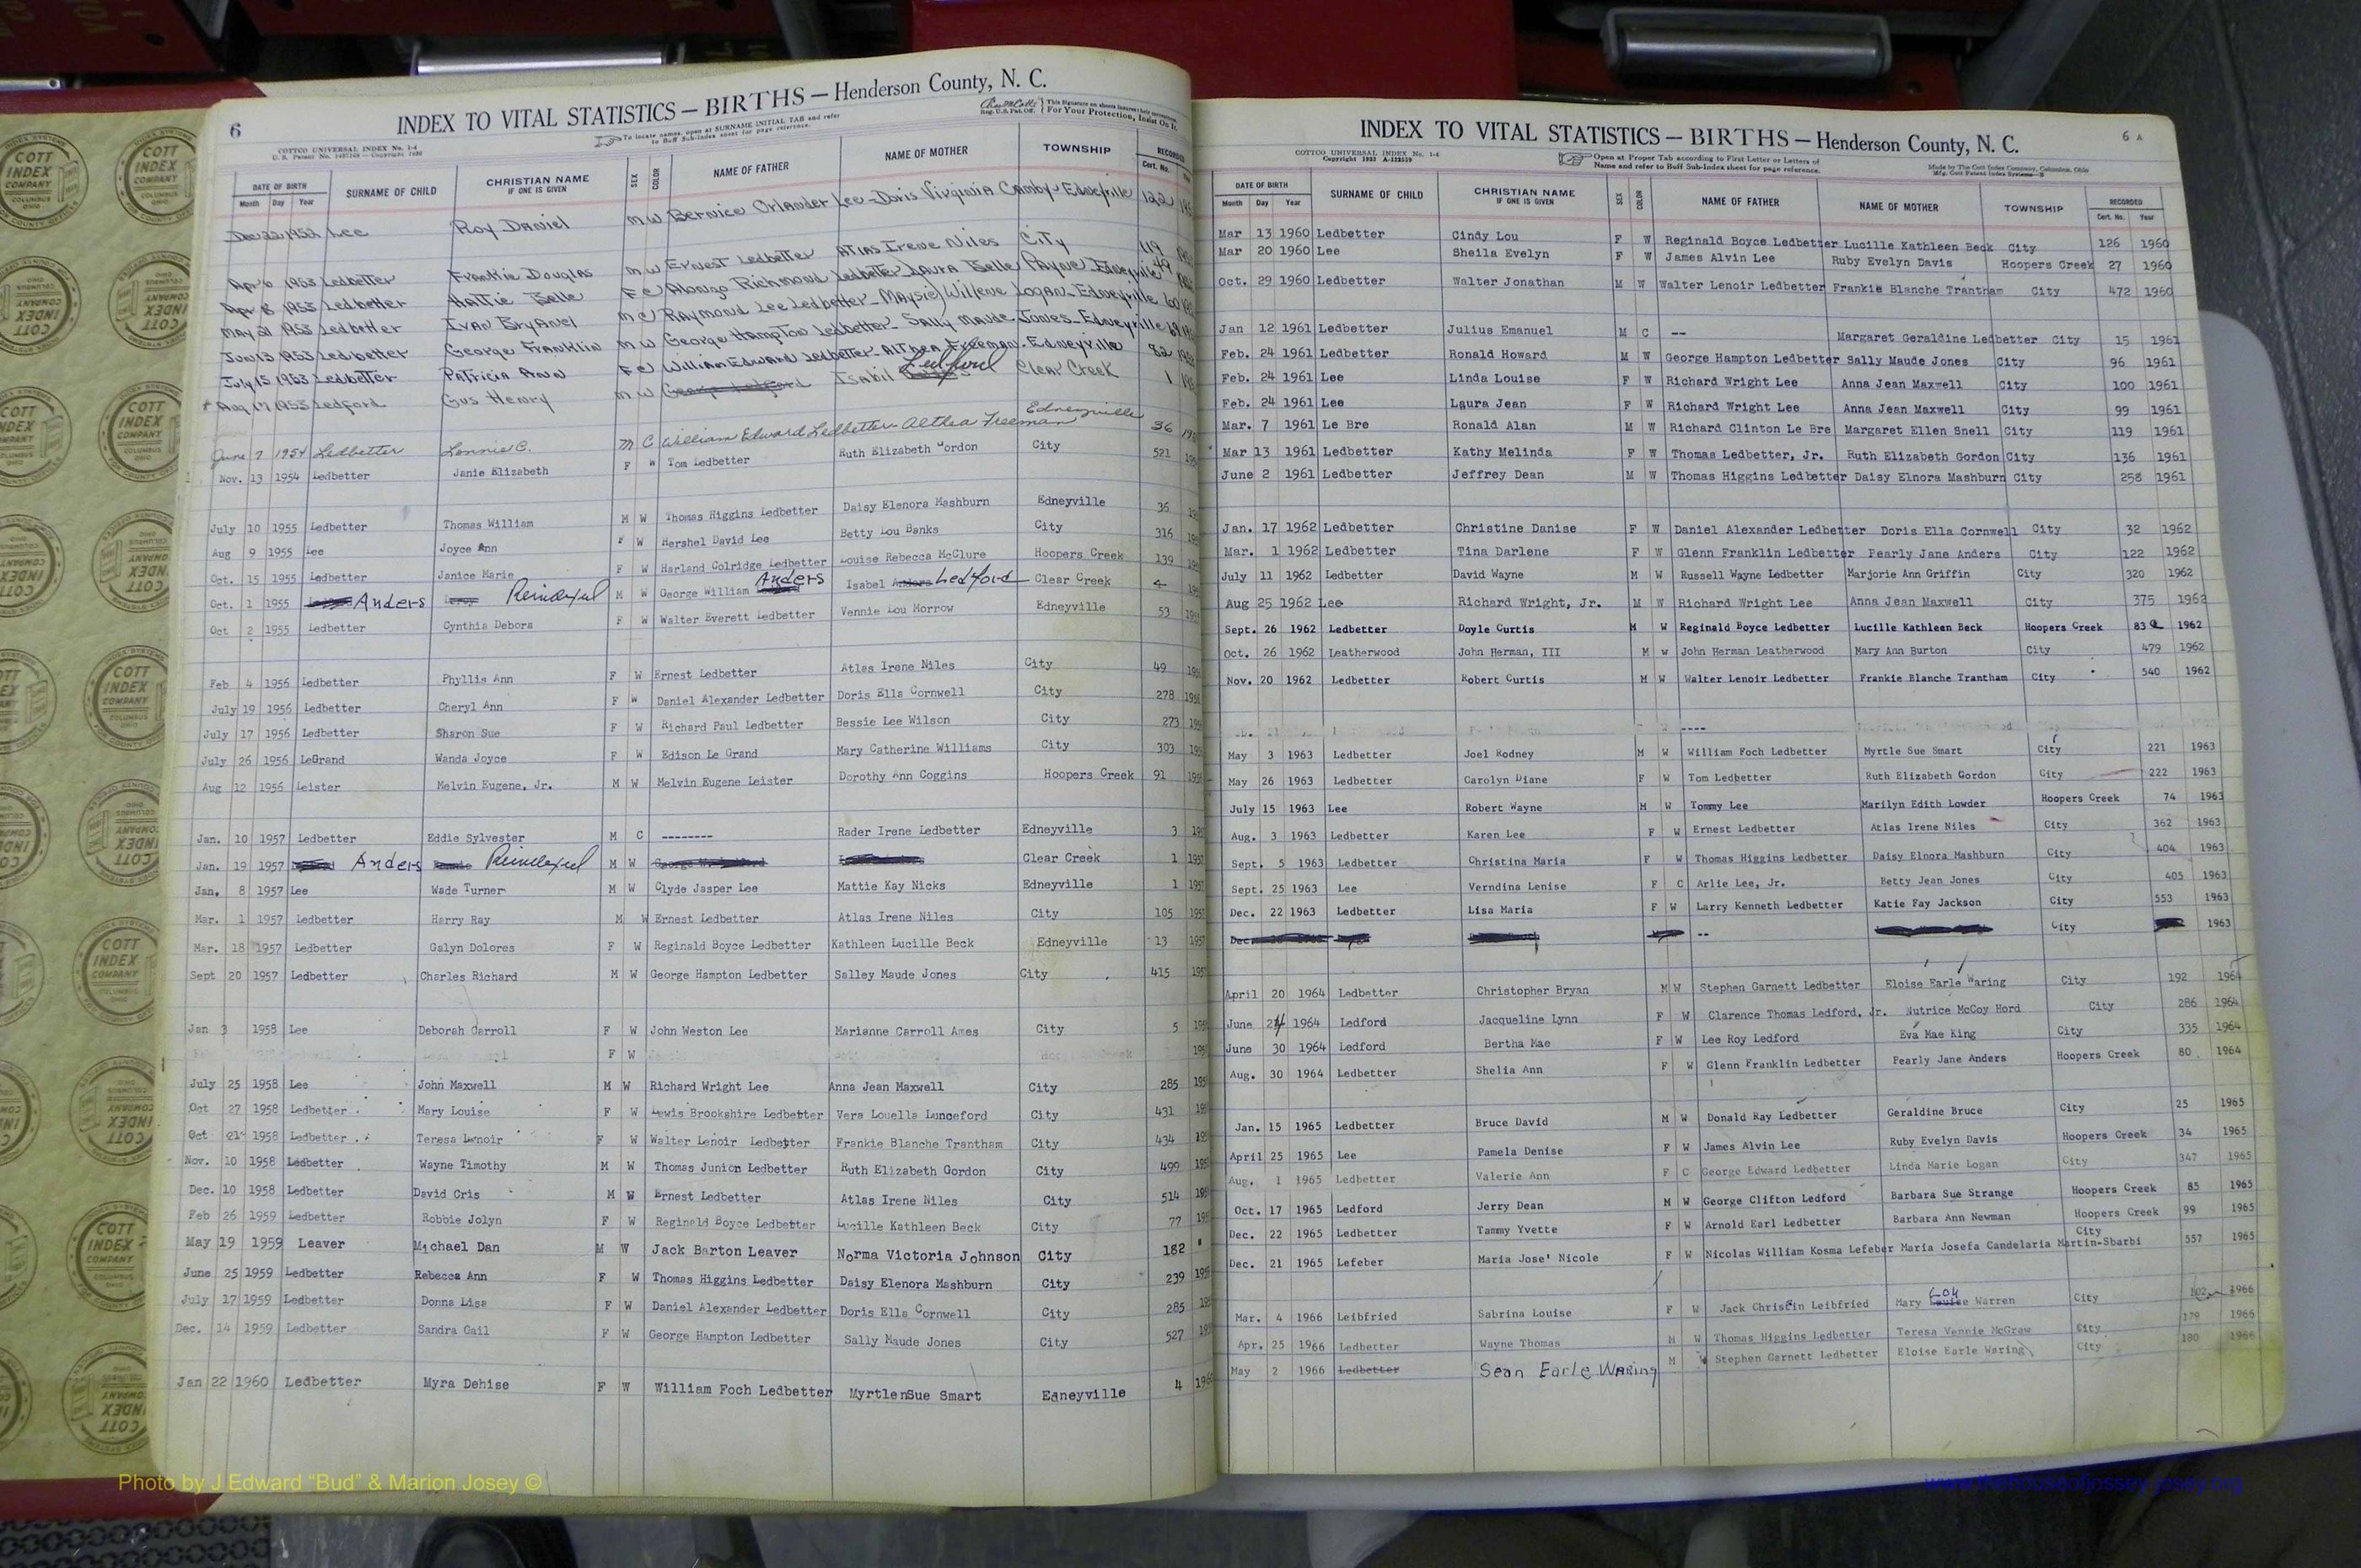 6
INDEX TO VITAL STATISTICS — BIRTHS — Henderson County, N. C.
COTTCO UNIVERSAL INDEX No. 1-4
To locate names, open at SURNAME INITIAL TAB and refer
to Buff Sub-Index sheet for page reference.
This Signature on sheets
For Your Protection, Insist On It.
DATE OF BIRTH SURNAME OF CHILD CHRISTIAN NAME SEX COLOR NAME OF FATHER NAME OF MOTHER TOWNSHIP RECORDED
Month Day Year IF ONE IS GIVEN Cert. No.
Dec 22 1952 Lee Roy Daniel M W Bernice Orlander Lee - Doris Virginia Camby - Edneyville 122
Apr 6 1953 Ledbetter Frankie Douglas M W Ernest Ledbetter Atlas Irene Niles City 119
Apr 8 1953 Ledbetter Hattie Belle F C Alonzo Richmond Ledbetter Laura Belle Payne Edneyville 49
May 21 1953 Ledbetter Ivan Bryanel M C Raymond Lee Ledbetter - Maysie Willene Logan - Edneyville 60
Jun 13 1953 Ledbetter George Franklin M W George Hampton Ledbetter - Sally Maude Jones - Edneyville 69
July 15 1953 Ledbetter Patricia Ann F C William Edward Ledbetter - Althea Freeman - Edneyville 82
Aug 17 1953 Ledford Gus Henry M W George Ledford Isabil Ledford Clear Creek 1
June 7 1954 Ledbetter Lonnie C. M C William Edward Ledbetter - Althea Freeman Edneyville 36
Nov. 13 1954 Ledbetter Janie Elizabeth F W Tom Ledbetter Ruth Elizabeth Gordon City 521
July 10 1955 Ledbetter Thomas William M W Thomas Higgins Ledbetter Daisy Elenora Mashburn Edneyville 36
Aug 9 1955 Lee Joyce Ann F W Hershel David Lee Betty Lou Banks City 316
Oct. 15 1955 Ledbetter Janice Marie F W Harland Colridge Ledbetter Louise Rebecca McClure Hoopers Creek 139
Oct. 1 1955 Anders Reindexed M W George William Anders Isabel Anders Ledford Clear Creek 4
Oct 2 1955 Ledbetter Cynthia Debora F W Walter Everett Ledbetter Vennie Lou Morrow Edneyville 53
Feb 4 1956 Ledbetter Phyllis Ann F W Ernest Ledbetter Atlas Irene Niles City 49
July 19 1956 Ledbetter Cheryl Ann F W Daniel Alexander Ledbetter Doris Ella Cornwell City 278
July 17 1956 Ledbetter Sharon Sue F W Richard Paul Ledbetter Bessie Lee Wilson City 273
July 26 1956 LeGrand Wanda Joyce F W Edison Le Grand Mary Catherine Williams City 303
Aug 12 1956 Leister Melvin Eugene, Jr. M W Melvin Eugene Leister Dorothy Ann Coggins Hoopers Creek 91
Jan. 10 1957 Ledbetter Eddie Sylvester M C -------- Rader Irene Ledbetter Edneyville 3
Jan. 19 1957 Anders Reindexed M W Clear Creek 1
Jan. 8 1957 Lee Wade Turner M W Clyde Jasper Lee Mattie Kay Nicks Edneyville 1
Mar. 1 1957 Ledbetter Harry Ray M W Ernest Ledbetter Atlas Irene Niles City 105
Mar. 18 1957 Ledbetter Galyn Dolores F W Reginald Boyce Ledbetter Kathleen Lucille Beck Edneyville 13
Sept 20 1957 Ledbetter Charles Richard M W George Hampton Ledbetter Salley Maude Jones City 415
Jan 3 1958 Lee Deborah Carroll F W John Weston Lee Marianne Carroll Ames City 5
F W
July 25 1958 Lee John Maxwell M W Richard Wright Lee Anna Jean Maxwell City 285
Oct 27 1958 Ledbetter Mary Louise F W Lewis Brookshire Ledbetter Vera Louella Lunceford City 431
Oct 21 1958 Ledbetter Teresa Lenoir F W Walter Lenoir Ledbetter Frankie Blanche Trantham City 434
Nov. 10 1958 Ledbetter Wayne Timothy M W Thomas Junion Ledbetter Ruth Elizabeth Gordon City 499
Dec. 10 1958 Ledbetter David Cris M W Ernest Ledbetter Atlas Irene Niles City 514
Feb 26 1959 Ledbetter Robbie Jolyn F W Reginald Boyce Ledbetter Lucille Kathleen Beck City 77
May 19 1959 Leaver Michael Dan M W Jack Barton Leaver Norma Victoria Johnson City 182 "
June 25 1959 Ledbetter Rebecca Ann F W Thomas Higgins Ledbetter Daisy Elenora Mashburn City 239
July 17 1959 Ledbetter Donna Lisa F W Daniel Alexander Ledbetter Doris Ella Cornwell City 285
Dec. 14 1959 Ledbetter Sandra Gail F W George Hampton Ledbetter Sally Maude Jones City 527
Jan 22 1960 Ledbetter Myra Dehise F W William Foch Ledbetter MyrtlenSue Smart Edneyville 4
INDEX TO VITAL STATISTICS — BIRTHS — Henderson County, N. C.
6 A
COTTCO UNIVERSAL INDEX No. 1-4
Open at Proper Tab according to First Letter or Letters of
Name and refer to Buff Sub-Index sheet for page reference.
Made by The Cott Index Company, Columbus, Ohio
DATE OF BIRTH SURNAME OF CHILD CHRISTIAN NAME SEX COLOR NAME OF FATHER NAME OF MOTHER TOWNSHIP RECORDED
Month Day Year IF ONE IS GIVEN Cert. No. Year
Mar 13 1960 Ledbetter Cindy Lou F W Reginald Boyce Ledbetter Lucille Kathleen Beck City 126 1960
Mar 20 1960 Lee Sheila Evelyn F W James Alvin Lee Ruby Evelyn Davis Hoopers Creek 27 1960
Oct. 29 1960 Ledbetter Walter Jonathan M W Walter Lenoir Ledbetter Frankie Blanche Trantham City 472 1960
Jan 12 1961 Ledbetter Julius Emanuel M C -- Margaret Geraldine Ledbetter City 15 1961
Feb. 24 1961 Ledbetter Ronald Howard M W George Hampton Ledbetter Sally Maude Jones City 96 1961
Feb. 24 1961 Lee Linda Louise F W Richard Wright Lee Anna Jean Maxwell City 100 1961
Feb. 24 1961 Lee Laura Jean F W Richard Wright Lee Anna Jean Maxwell City 99 1961
Mar. 7 1961 Le Bre Ronald Alan M W Richard Clinton Le Bre Margaret Ellen Snell City 119 1961
Mar 13 1961 Ledbetter Kathy Melinda F W Thomas Ledbetter, Jr. Ruth Elizabeth Gordon City 136 1961
June 2 1961 Ledbetter Jeffrey Dean M W Thomas Higgins Ledbetter Daisy Elnora Mashburn City 258 1961
Jan. 17 1962 Ledbetter Christine Danise F W Daniel Alexander Ledbetter Doris Ella Cornwell City 32 1962
Mar. 1 1962 Ledbetter Tina Darlene F W Glenn Franklin Ledbetter Pearly Jane Anders City 122 1962
July 11 1962 Ledbetter David Wayne M W Russell Wayne Ledbetter Marjorie Ann Griffin City 320 1962
Aug 25 1962 Lee Richard Wright, Jr. M W Richard Wright Lee Anna Jean Maxwell City 375 1962
Sept. 26 1962 Ledbetter Doyle Curtis M W Reginald Boyce Ledbetter Lucille Kathleen Beck Hoopers Creek 83 1962
Oct. 26 1962 Leatherwood John Herman, III M W John Herman Leatherwood Mary Ann Burton City 479 1962
Nov. 20 1962 Ledbetter Robert Curtis M W Walter Lenoir Ledbetter Frankie Blanche Trantham City 540 1962
----
May 3 1963 Ledbetter Joel Rodney M W William Foch Ledbetter Myrtle Sue Smart City 221 1963
May 26 1963 Ledbetter Carolyn Diane F W Tom Ledbetter Ruth Elizabeth Gordon City 222 1963
July 15 1963 Lee Robert Wayne M W Tommy Lee Marilyn Edith Lowder Hoopers Creek 74 1963
Aug. 3 1963 Ledbetter Karen Lee F W Ernest Ledbetter Atlas Irene Niles City 362 1963
Sept. 5 1963 Ledbetter Christina Maria F W Thomas Higgins Ledbetter Daisy Elnora Mashburn City 404 1963
Sept. 25 1963 Lee Verndina Lenise F C Arlie Lee, Jr. Betty Jean Jones City 405 1963
Dec. 22 1963 Ledbetter Lisa Maria F W Larry Kenneth Ledbetter Katie Fay Jackson City 553 1963
Dec -- City 1963
April 20 1964 Ledbetter Christopher Bryan M W Stephen Garnett Ledbetter Eloise Earle Waring City 192 1964
June 24 1964 Ledford Jacqueline Lynn F W Clarence Thomas Ledford, Jr. Nutrice McCoy Hord City 286 1964
June 30 1964 Ledford Bertha Mae F W Lee Roy Ledford Eva Mae King City 335 1964
Aug. 30 1964 Ledbetter Shelia Ann F W Glenn Franklin Ledbetter Pearly Jane Anders Hoopers Creek 80 1964
Jan. 15 1965 Ledbetter Bruce David M W Donald Ray Ledbetter Geraldine Bruce City 25 1965
April 25 1965 Lee Pamela Denise F W James Alvin Lee Ruby Evelyn Davis Hoopers Creek 34 1965
Aug. 1 1965 Ledbetter Valerie Ann F C George Edward Ledbetter Linda Marie Logan City 347 1965
Oct. 17 1965 Ledford Jerry Dean M W George Clifton Ledford Barbara Sue Strange Hoopers Creek 85 1965
Dec. 22 1965 Ledbetter Tammy Yvette F W Arnold Earl Ledbetter Barbara Ann Newman Hoopers Creek 99 1965
Dec. 21 1965 Lefeber Maria Jose' Nicole F W Nicolas William Kosma Lefeber Maria Josefa Candelaria Martin-Sbarbi City 557 1965
Mar. 4 1966 Leibfried Sabrina Louise F W Jack Christin Leibfried Mary Lou Warren City 102 1966
Apr. 25 1966 Ledbetter Wayne Thomas M W Thomas Higgins Ledbetter Teresa Vennie McGraw City 179 1966
May 2 1966 Ledbetter Sean Earle Waring M W Stephen Garnett Ledbetter Eloise Earle Waring City 180 1966
Photo by J Edward “Bud” & Marion Josey ©
www.thehouseofjossey-josey.org
COTT INDEX COMPANY COLUMBUS OHIO